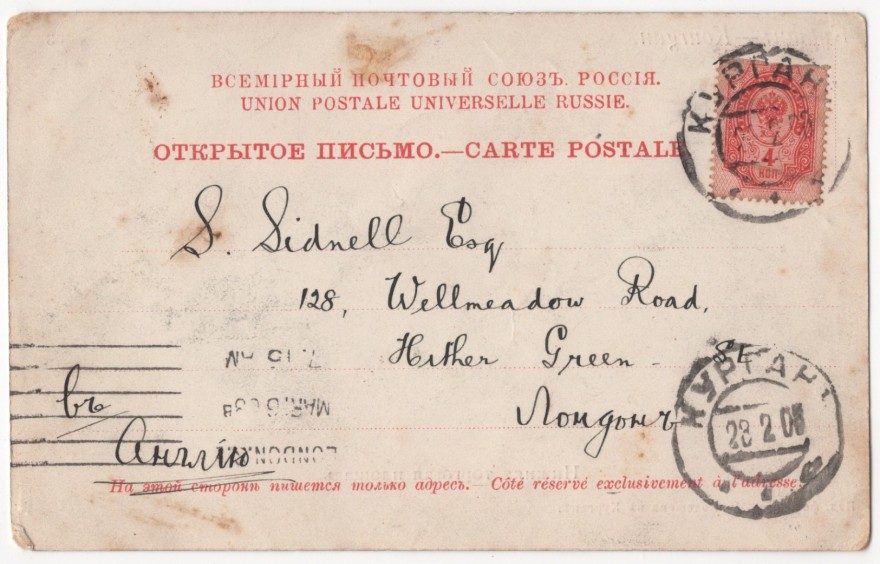 ВСЕМІРНЫЙ ПОЧТОВЫЙ СОЮЗЪ. РОССІЯ.
UNION POSTALE UNIVERSELLE RUSSIE.
ОТКРЫТОЕ ПИСЬМО.—CARTE POSTALE
КУРГАН
4
КОП
S. Sidnell Esq
128, Wellmeadow Road,
Hither Green - SE
Лондонъ
въ
Англію
7.15 AM
MAR.
LONDON
КУРГАНЪ
28 2 0
На этой сторонѣ пишется только адресъ. — Côté réservé exclusivement à l'adresse.